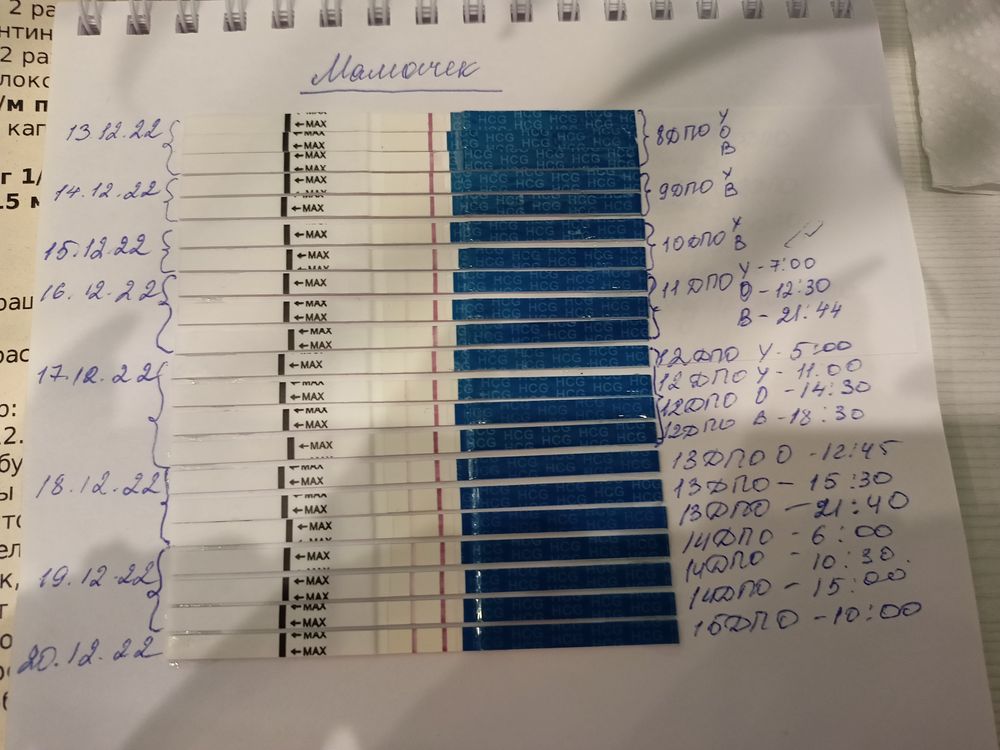 2 ра
нтин
2 раз
локо
/м п
кап
г 1/
15 м
раш
рас
Мамочек
13.12.22 ←MAX HCG 8ДПО У
←MAX HCG О
←MAX HCG В
14.12.22 ←MAX HCG 9ДПО У
←MAX HCG В
15.12.22 ←MAX HCG 10ДПО У
←MAX HCG В
16.12.22 ←MAX HCG 11ДПО У-7:00
←MAX HCG О-12:30
←MAX HCG В-21:44
17.12.22 ←MAX HCG 12ДПО У-5:00
←MAX HCG 12ДПО У-11.00
←MAX HCG 12ДПО О-14:30
←MAX HCG 12ДПО В-18:30
18.12.22 ←MAX HCG 13ДПО О-12:45
←MAX HCG 13ДПО-15:30
←MAX HCG 13ДПО-21:40
19.12.22 ←MAX HCG 14ДПО-6:00
←MAX HCG 14ДПО-10:30.
←MAX HCG 14ДПО-15:00
20.12.22 ←MAX HCG 15ДПО-10:00